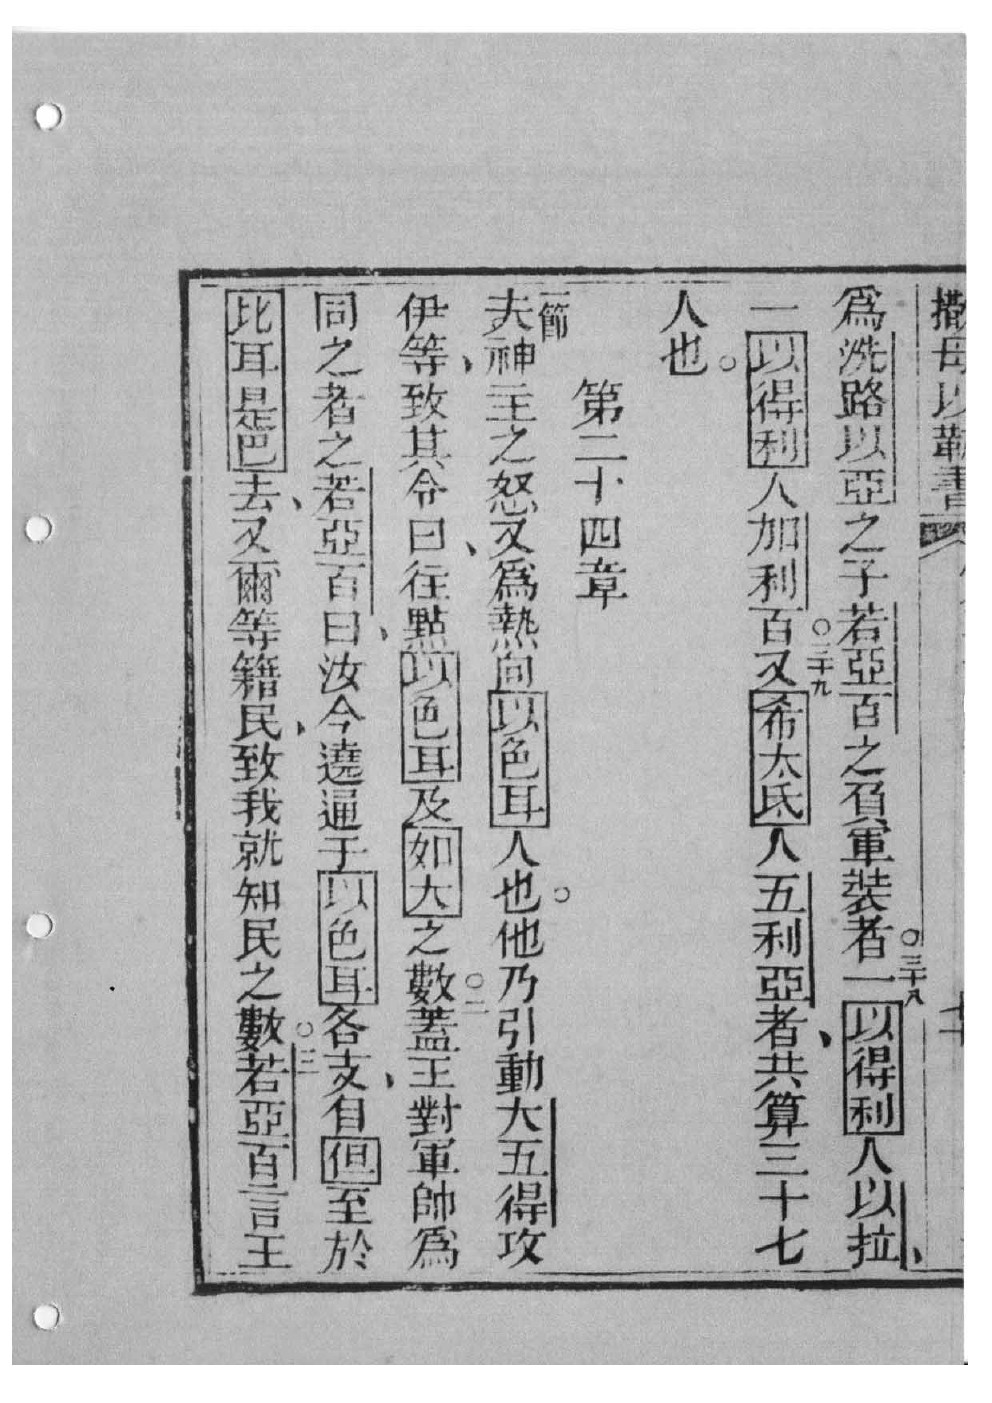 撒母以勒書
為洗路以亞之子若亞百之負軍裝者○三十八一以得利人以拉、
一以得利人加利百○三十九又希太氏人五利亞者、共算三十七
人也。
第二十四章
一節夫神主之怒又為熱向以色耳人也。他乃引動大五得攻
伊等、致其令曰、往點以色耳及如大之數○二蓋王對軍帥為
同之者之若亞百曰、汝今遶逼于以色耳各支、自但至於
比耳是巴去、又爾等籍民、致我就知民之數○三若亞百言王